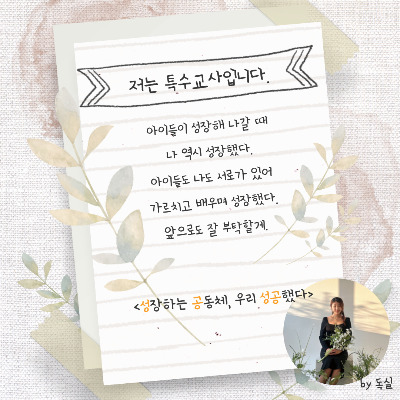 저는 특수교사입니다.
아이들이 성장해 나갈 때
나 역시 성장했다.
아이들도 나도 서로가 있어
가르치고 배우며 성장했다.
앞으로도 잘 부탁할게.
<성장하는 공동체, 우리 성공했다>
by 독실